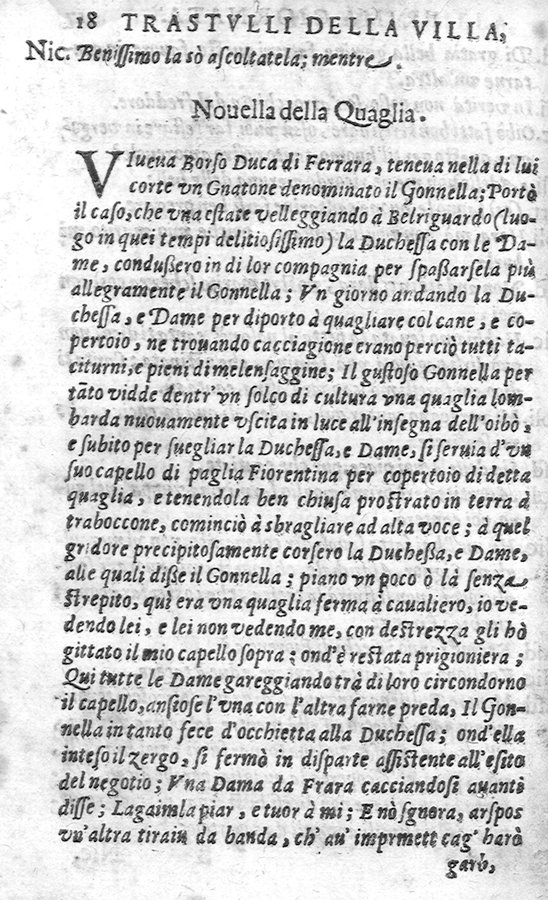 18 TRASTVLLI DELLA VILLA,
Nic. Benissimo la sò ascoltatela; mentre.
Nouella della Quaglia.
VIueua Borso Duca di Ferrara, teneua nella di lui
corte vn Gnatone denominato il Gonnella; Portò
il caso, che vna estate velleggiando à Belriguardo (luo-
go in quei tempi delitiosissimo) la Duchessa con le Da-
me, condussero in di lor compagnia per spassarsela più
allegramente il Gonnella; Vn giorno andando la Du-
chessa, e Dame per diporto à quagliare col cane, e co-
pertoio, ne trouando cacciagione erano perciò tutti ta-
citurni, e pieni di melensaggine; Il gustoso Gonnella per
tãto vidde dentr' vn solco di cultura vna quaglia lom-
barda nuouamente vscita in luce all'insegna dell'oibò,
e subito per suegliar la Duchessa, e Dame, si seruia d'vn
suo capello di paglia Fiorentina per copertoio di detta
quaglia, e tenendola ben chiusa prostrato in terra à
traboccone, cominciò à sbragliare ad alta voce; à quel
gridore precipitosamente corsero la Duchessa, e Dame,
alle quali disse il Gonnella; piano vn poco ò là senza
strepito, quì era vna quaglia ferma à caualiero, io ve-
dendo lei, e lei non vedendo me, con destrezza gli hò
gittato il mio capello sopra; ond'è restata prigioniera;
Qui tutte le Dame gareggiando trà di loro circondorno
il capello, ansiose l'vna con l'altra farne preda, Il Gon-
nella in tanto fece d'occhietta alla Duchessa; ond'ella
inteso il zergo, si fermò in disparte assistente all'esito
del negotio; Vna Dama da Frara cacciandosi auanti
disse; Lagaimla piar, e tuor à mi; E nò sgnora, arspos
vn'altra tiraiu da banda, ch' au' imprmett cag' harò
garb,